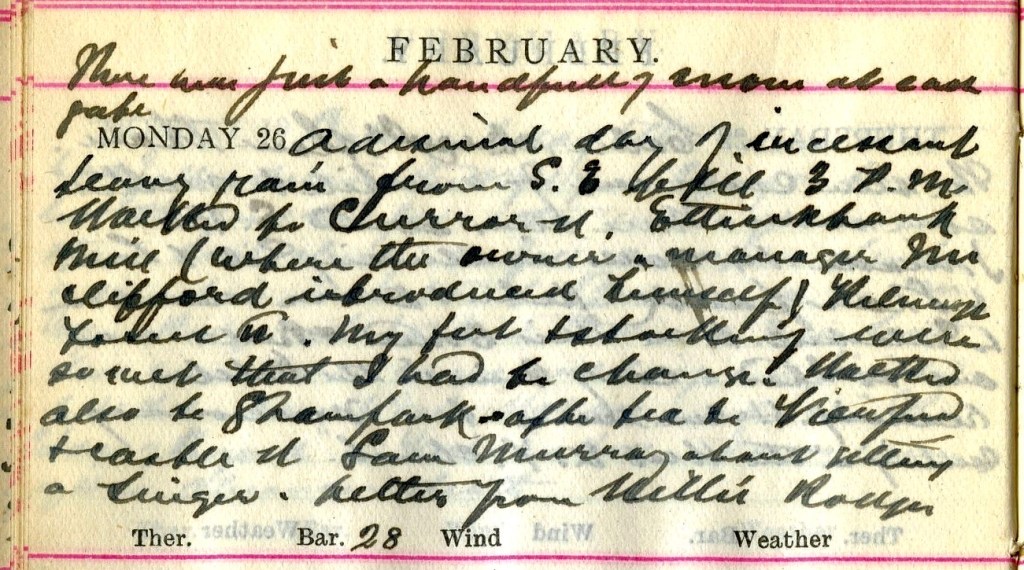 FEBRUARY.
There was just a handfull of snow at east
gate
MONDAY 26 A dismal day of incessant
heavy rain from S. E till 3 P. M.
Walked to Curror St. Ettrickbank
Mill (where the owner & manager Mr
Clifford introduced himself)
My feet & stockings were
so wet that I had to change. Walked
also to & after tea to Viewfield
& Castle St Sam Murray about getting
a Singer. Letter from Willie Rodger
Ther. Bar. 28 Wind Weather